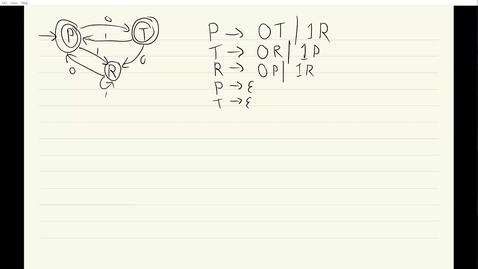 P → 0T | 1R
T → 0R | 1P
R → 0P | 1R
P → ε
T → ε
0
P
1
T
1
0
R
0
1